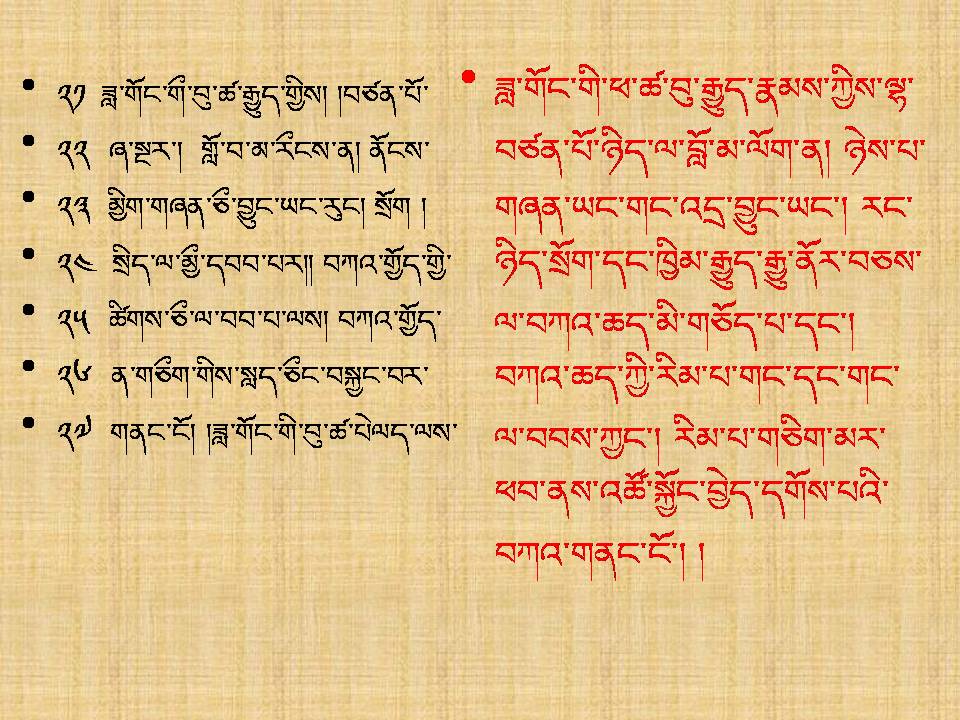 • ༢༡ ཟླ་གོང་གི་བུ་ཚ་རྒྱུད་གྱིས། །བཙན་པོ་
• ༢༢ ཞ་སྔར་། གློ་བ་མ་རིངས་ན། ནོངས་
• ༢༣ མྱིག་གཞན་ཅི་བྱུང་ཡང་རུང། སྲོག །
• ༢༤ སྲིད་ལ་མྱི་དབབ་པར།། བཀའ་གྱོད་གྱི་
• ༢༥ ཚིགས་ཅི་ལ་བབ་པ་ལས། བཀའ་གྱོད་
• ༢༦ ན་གཅིག་གིས་སླད་ཅིང་བསྐྱང་བར་
• ༢༧ གནང་ངོ། །ཟླ་གོང་གི་བུ་ཚ་པེལད་ལས་
• ཟླ་གོང་གི་ཕ་ཚ་བུ་རྒྱུད་རྣམས་ཀྱིས་ལྷ་
བཙན་པོ་ཉིད་ལ་བློ་མ་ལོག་ན། ཉེས་པ་
གཞན་ཡང་གང་འདྲ་བྱུང་ཡང་། རང་
ཉིད་སྲོག་དང་ཁྱིམ་རྒྱུད་རྒྱུ་ནོར་བཅས་
ལ་བཀའ་ཆད་མི་གཅོད་པ་དང་།
བཀའ་ཆད་ཀྱི་རིམ་པ་གང་དང་གང་
ལ་བབས་ཀྱང་། རིམ་པ་གཅིག་མར་
ཕབ་ནས་འཚོ་སྐྱོང་བྱེད་དགོས་པའི་
བཀའ་གནང་ངོ་། །